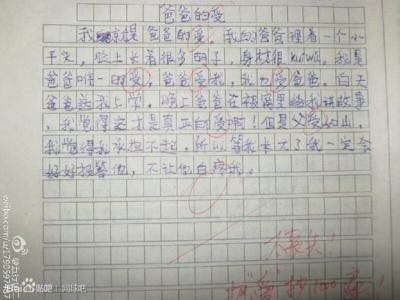 爸爸的爱
我 提爸爸的爱,我的爸爸理着一个小
平头,脸上长着很多胡子,身材很kuiwu,我是
爸爸唯一的爱,爸爸爱我,我也爱爸爸,白天
爸爸送我上学,晚上爸爸在被窝里给我讲故事
,我觉得这才是真正的爱啊!但是父爱如山,
我觉得我承担不起,所以等我长大了我一定会
好好报答他,不让他白疼我。
太丧失!
把"爱"抄1000遍!